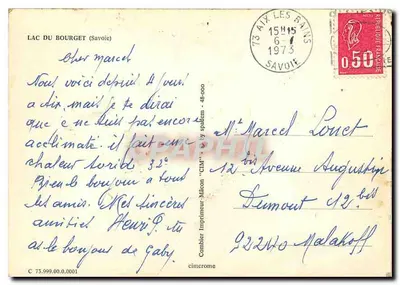 LAC DU BOURGET (Savoie)
Cher Marcel
Nous voici depuis 4 jours
a Aix, mais je te dirai
que ce ne suis pas encore
acclimaté il fait une
chaleur torid 32°
Bien le bonjour a tout
les amis. Mes sincères
amitiés Henri P. tu
as le bonjour de Gaby.
C 73.999.00.0.0001
Combier Imprimeur Mâcon "CIM"
cimcrome
73 AIX LES BAINS
15H15
6-
1973
SAVOIE
0,50
Mr Marcel
12 bis Avenue Augustin
Dumont 12 bis
92240 Malakoff